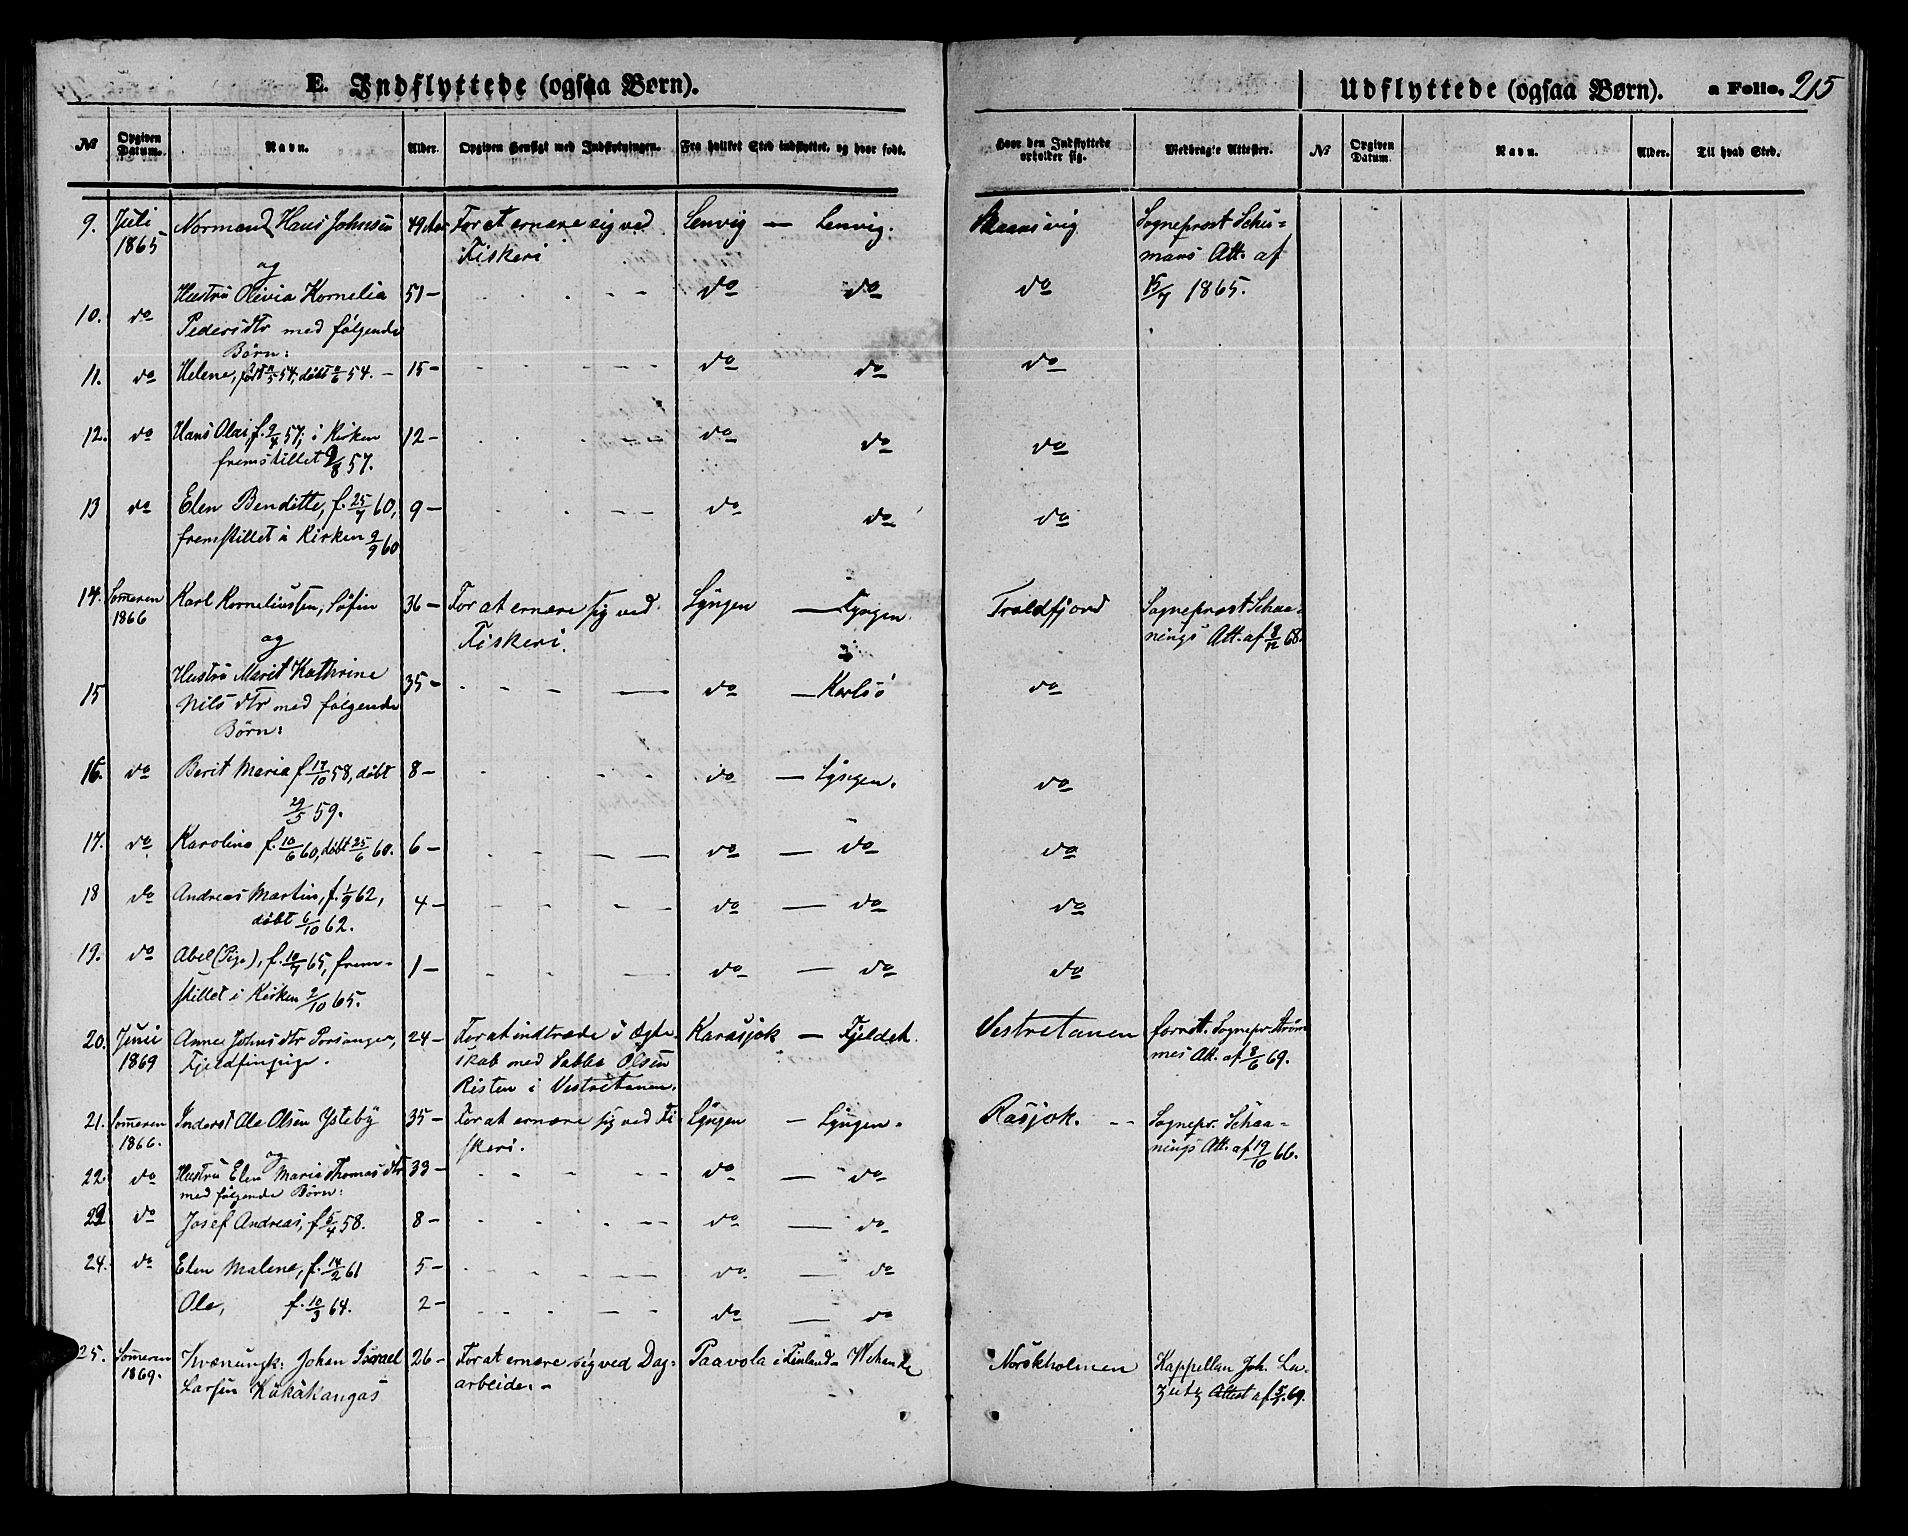 E. Indflyttede (ogsaa Børn).
Udflyttede (ogsaa Børn). a Folio. 215
№ Opgiven Datum. Navn. Alder. Opgiven Hensigt med Indflytningen. Fra hvilket Sted indflyttet, og hvor født. Hvor den Indflyttede opholder sig. Medbragte Attester. № Opgiven Datum. Navn. Alder. Til hvad Sted.
9. Juli Normand Hans Johnsen 49 Aar For at ernære sig ved Lenvig — Lenvig. Sogneprost Schu-
1865 og Fiskeri mans Att. af
Hustru Olivia Kornelia 51 – do do do 15/7 1865.
10. do Pedersdtr med følgende
Børn:
11. do Helene, født 54, døbt 54. – 15 – do do do
12. do Hans Olai, f. 57, i Kirken 12 – do do do
fremstillet 57.
13 do Elen Benditte, f. 25/7 60, 9 – do do do
fremstillet i Kirken 9/9 60
14. Someren Karl Korneliussen, Søfin 36 – For at ernære sig ved Lyngen — Lyngen. Troldfjord Sogneprost Schaa-
1866 og Fiskeri. nings Att. af 8/12 68.
Hustru Marit Kathrine 35 – do — Karlsö do
15 Nilsdtr med følgende
Børn:
16. do Berit Maria f. 17/10 58, døbt 8 – do — Lyngen. do
29/5 59.
17. do Karoline f. 10/6 60, døbt 25/6 60. 6 – do — do do
18 do Andreas Martin, f. 1/9 62, 4 – do — do do
døbt 6/10 62.
19. do Abel (Pige), f. 10/7 65, frem- 1 – do — do do
stillet i Kirken 2/10 65.
20. Juni Anne Johnsdtr Porsanger, 24 – For at indtræde i Ægte- Karasjok — Fjeldet. Vestretanen
1869 Fjeldfinpige. skab med Sabba Olsen mes Att. af 8/6 69.
Risten i Vestretanen.
21. Someren Inderst Ole Olsen Ysteby 35 – For at ernære sig ved Fi- Lyngen — Lyngen. Rasjok. Sognepr. Schaa-
1866. og skeri. nings Att. af 19/10 66.
22. do Hustru Elen Marie Thomasdtr 33 – do — do
med følgende Børn:
23 do Josef Andreas, f. 5/4 58. 8 – do — do
24. do Elen Malene, f. 14/2 61 5 – do — do
Ole, f. 10/3 64. 2 – do — do
25. Someren Kvænungk: Johan Israel 26 – For at ernære sig ved Dag- Paavola i Finland – Norskholmen Kappellan Joh. La-
1869. Larsen Kukäkangas arbeide. – Attest af 69.